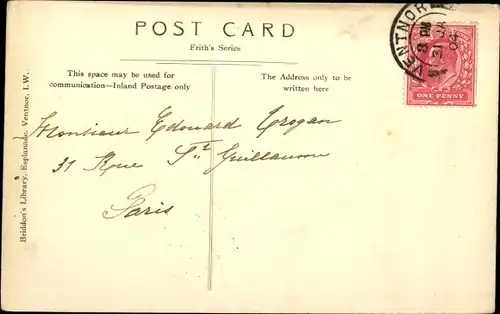 POST CARD
Frith's Series.
This space may be used for
communication—Inland Postage only
The Address only to be
written here
VENTNOR
8 PM
31 JA
04
ONE PENNY
Monsieur Edouard Crogan
31 Rue St. Guillaume
Paris
Briddon's Library, Esplanade, Ventnor, I.W.